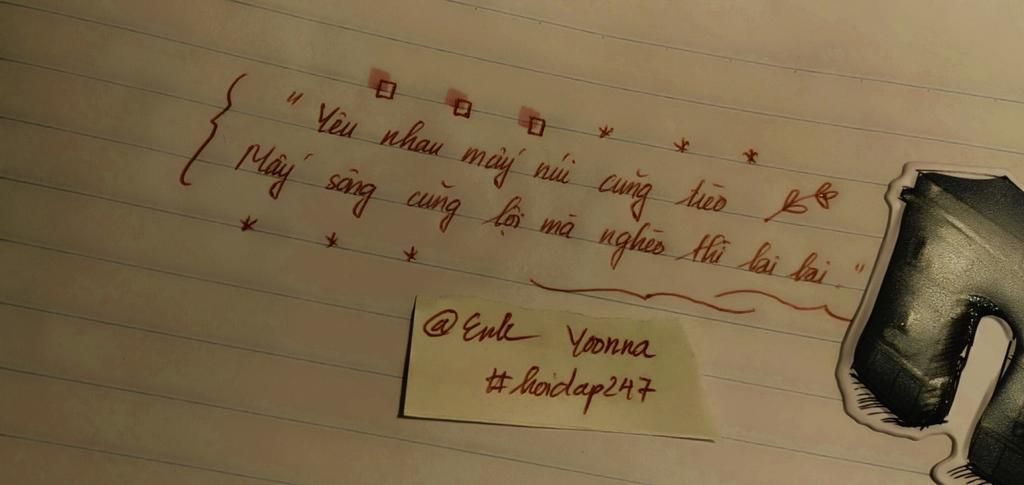 "Yêu nhau mấy núi cũng trèo
Mấy sông cũng lội mà nghèo thì bai bai."
@Enk Yoonna
#hoidap247